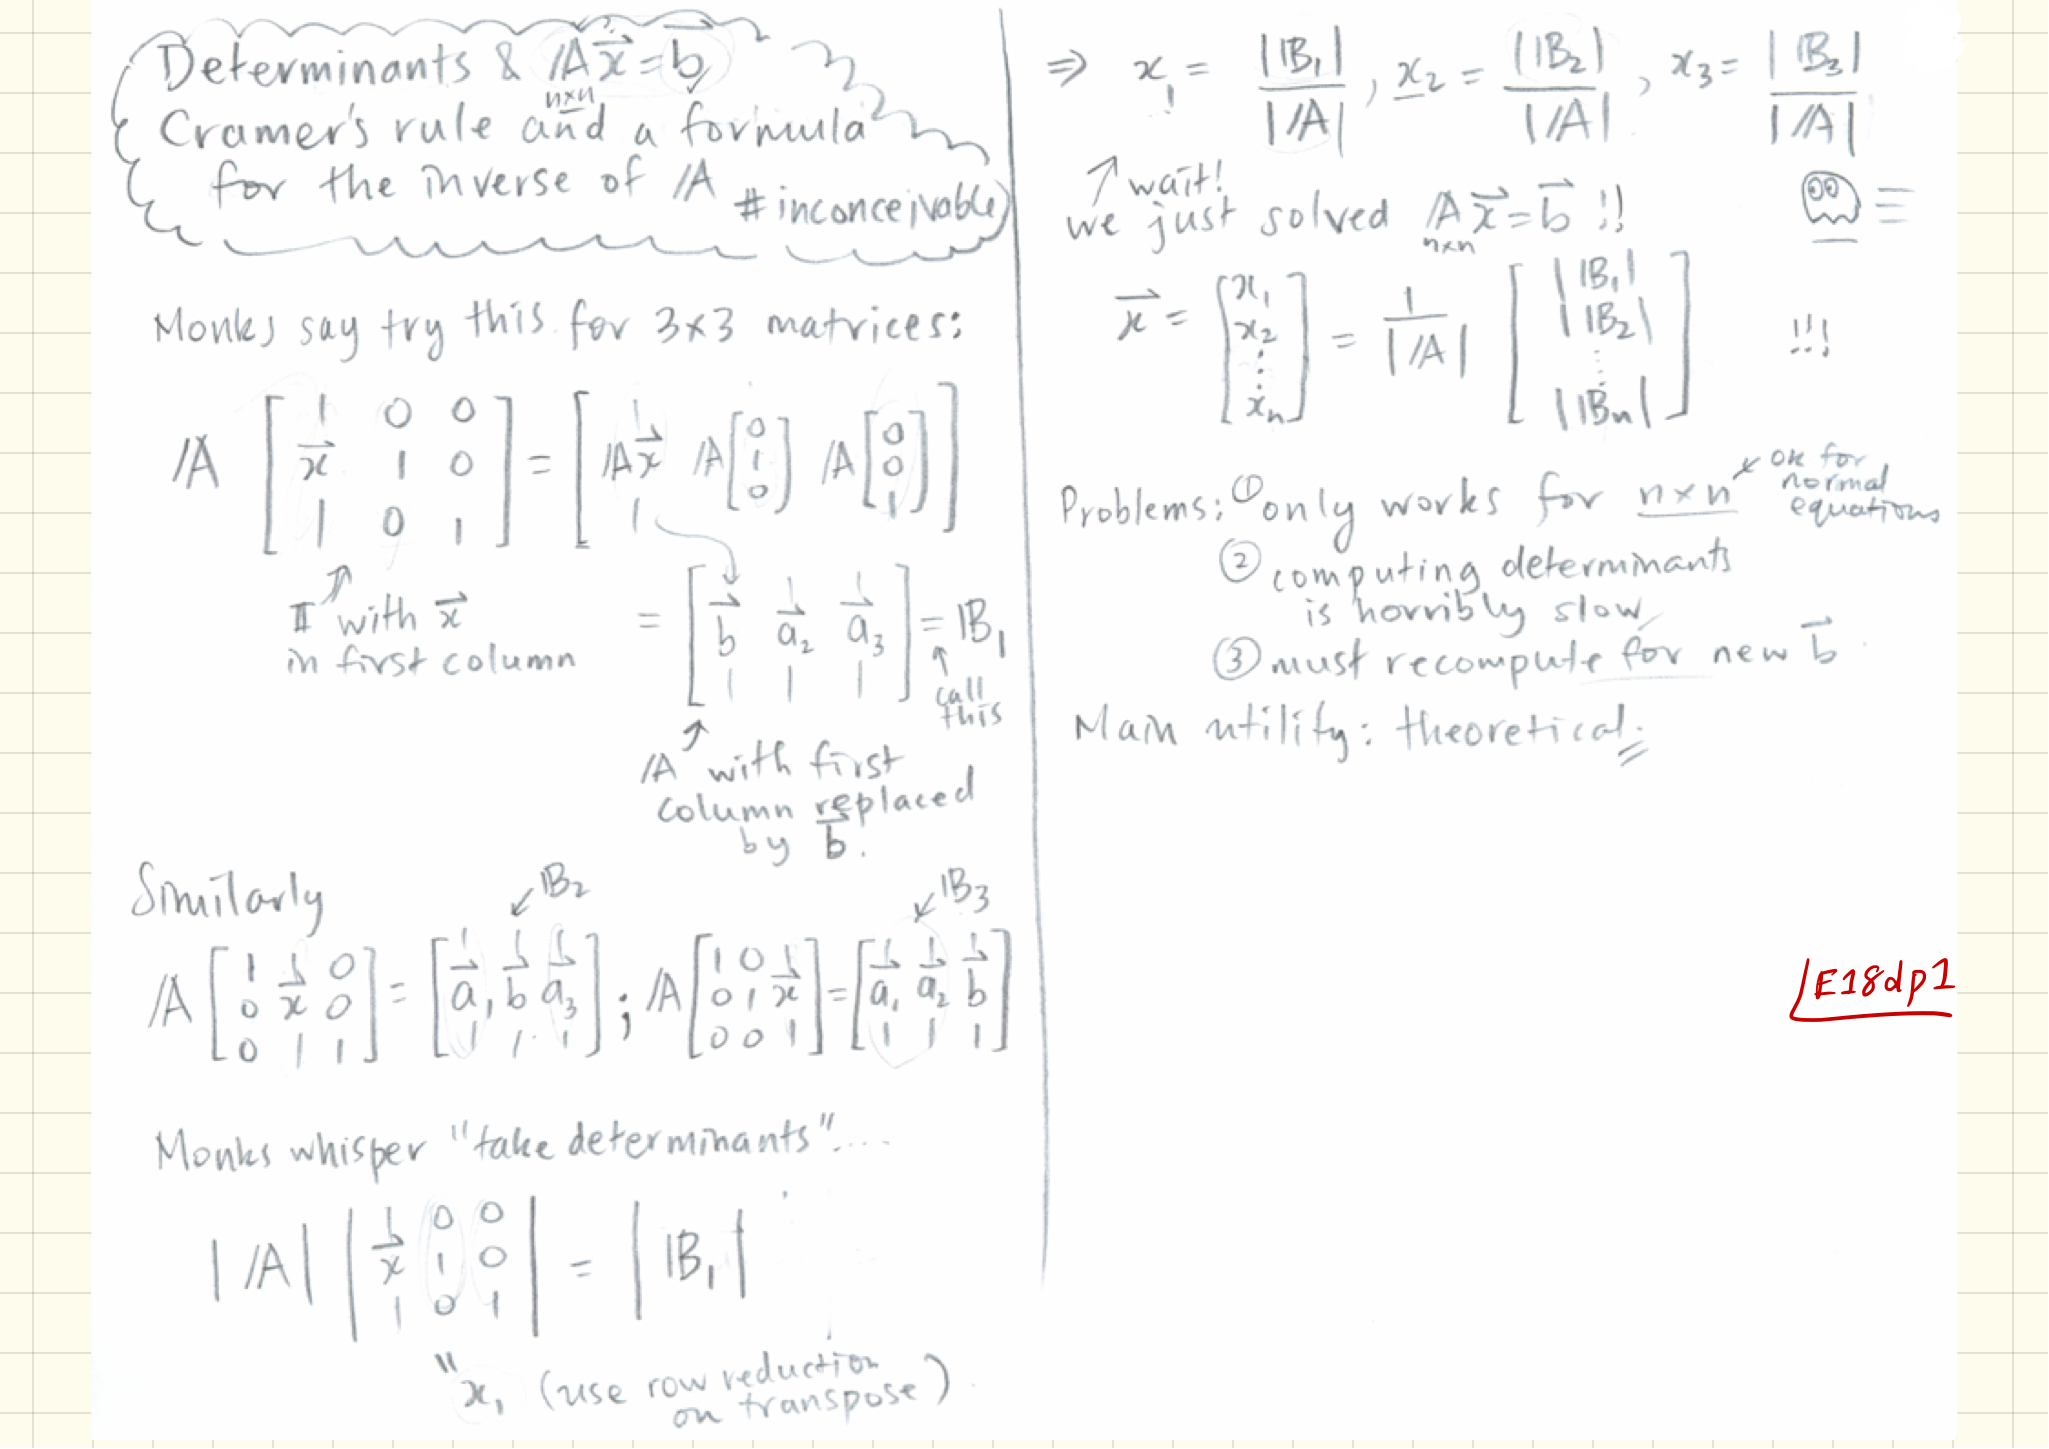 Determinants & 𝔸x⃗ = b⃗
n×n
Cramer's rule and a formula
for the inverse of 𝔸
#inconceivable
Monks say try this for 3×3 matrices:
𝔸 [ | 0 0 ; x⃗ 1 0 ; | 0 1 ] = [ 𝔸x⃗ 𝔸[0 1 0] 𝔸[0 0 1] ]
𝕀 with x⃗
in first column
= [ b⃗ a⃗₂ a⃗₃ ] = 𝔹₁
call
this
𝔸 with first
column replaced
by b⃗.
Similarly
𝔹₂
𝔹₃
𝔸 [ 1 | 0 ; 0 x⃗ 0 ; 0 | 1 ] = [ a⃗₁ b⃗ a⃗₃ ] ; 𝔸 [ 1 0 | ; 0 1 x⃗ ; 0 0 | ] = [ a⃗₁ a⃗₂ b⃗ ]
Monks whisper "take determinants"....
|𝔸| | | 0 0 ; x⃗ 1 0 ; | 0 1 | = |𝔹₁|
" x₁ (use row reduction
on transpose).
⇒ x₁ = |𝔹₁| / |𝔸| , x₂ = |𝔹₂| / |𝔸| , x₃ = |𝔹₃| / |𝔸|
wait!
we just solved 𝔸x⃗ = b⃗ !!
n×n
x⃗ = [ x₁ x₂ ⋮ xₙ ] = 1 / |𝔸| [ |𝔹₁| |𝔹₂| ⋮ |𝔹ₙ| ] !!!
Problems: ① only works for n×n
OK for
normal
equations
② computing determinants
is horribly slow
③ must recompute for new b⃗
Main utility: theoretical.
E18dp1